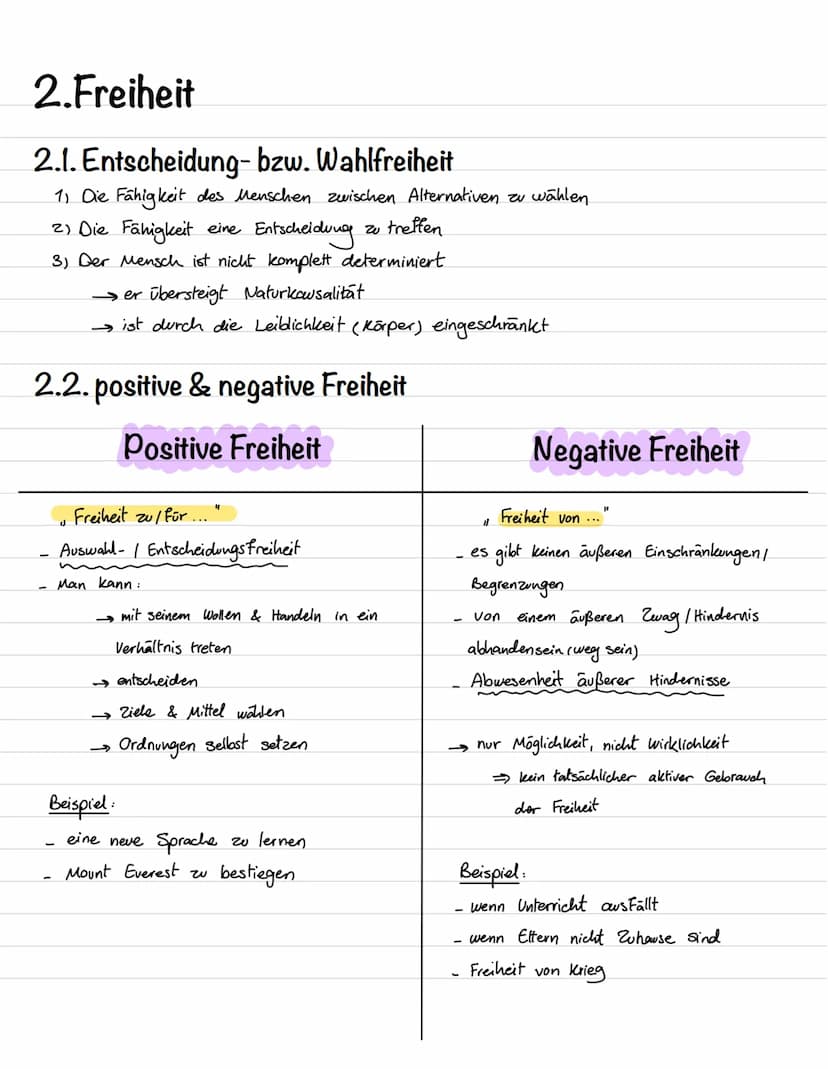 2.Freiheit
2.1. Entscheidung- bzw. Wahlfreiheit
1) Die Fähigkeit des Menschen zwischen Alternativen zu wählen
2) Die Fähigkeit eine Entscheidung zu treffen
3) Der Mensch ist nicht komplett determiniert
→ er übersteigt Naturkausalität
→ ist durch die Leiblichkeit (Körper) eingeschränkt
2.2. positive & negative Freiheit
Positive Freiheit
„Freiheit zu/für ..."
- Auswahl- / Entscheidungsfreiheit
- Man kann:
→ mit seinem Wollen & Handeln in ein
Verhältnis treten
→ entscheiden
→ Ziele & Mittel wählen
→ Ordnungen selbst setzen
Beispiel:
- eine neue Sprache zu lernen
- Mount Everest zu bestiegen
Negative Freiheit
„Freiheit von ..."
- es gibt keinen äußeren Einschränkungen/
Begrenzungen
- von einem äußeren Zwag/Hindernis
abhandensein (weg sein)
- Abwesenheit äußerer Hindernisse
→ nur Möglichkeit, nicht Wirklichkeit
⇒ kein tatsächlicher aktiver Gebrauch
der Freiheit
Beispiel:
- wenn Unterricht ausfällt
- wenn Eltern nicht Zuhause sind
- Freiheit von Krieg